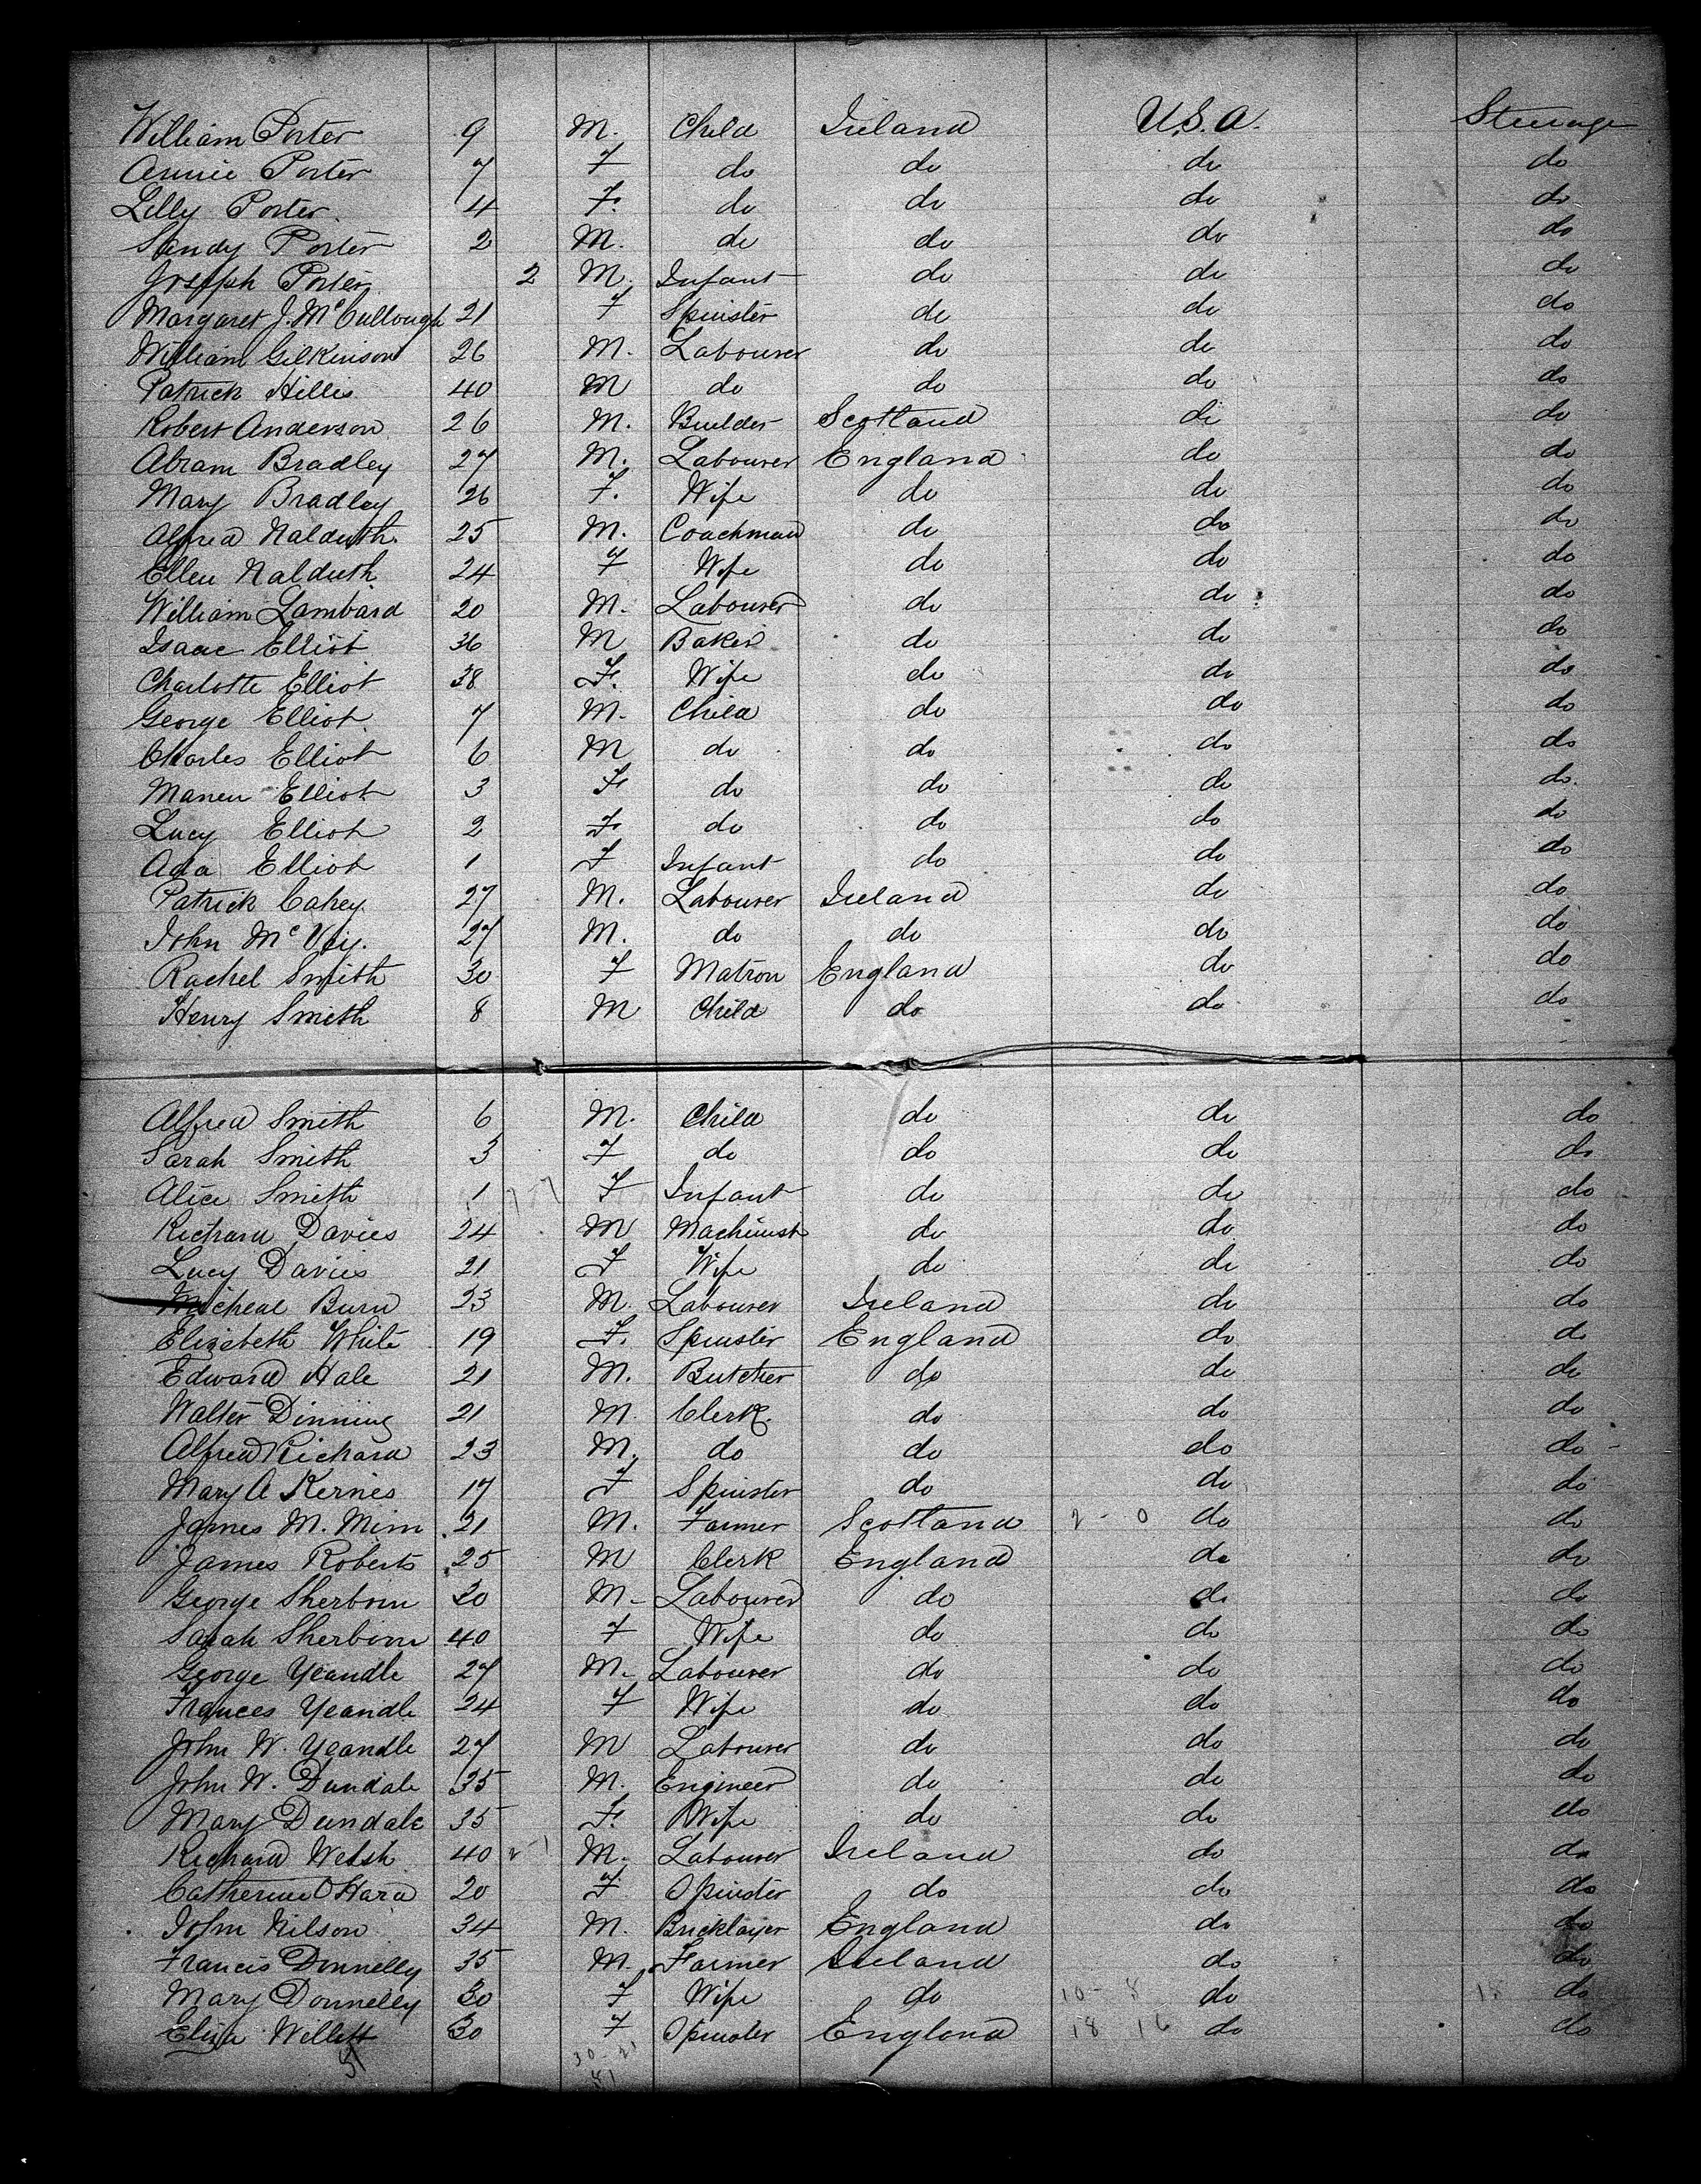 William Porter 9 M. Child Ireland U.S.A. Steerage
Annie Porter 7 F do do do do
Lilly Porter 4 F. do do do do
Sandy Porter 2 M. do do do do
Joseph Porter 2 M. Infant do do do
Margaret J. McCullough 21 F Spinster do do do
William Gilkinson 26 M. Labourer do do do
Patrick Hillis 40 M do do do do
Robert Anderson 26 M. Builder Scotland do do
Abram Bradley 27 M. Labourer England do do
Mary Bradley 26 F. Wife do do do
Alfred 25 M. Coachman do do do
Ellen 24 F Wife do do do
William Lambard 20 M. Labourer do do do
Isaac Elliot 36 M Baker do do do
Charlotte Elliot 38 F. Wife do do do
George Elliot 7 M. Child do do do
Charles Elliot 6 M do do do do
Elliot 3 F do do do do
Lucy Elliot 2 F do do do do
Ada Elliot 1 F Infant do do do
Patrick Cahey 27 M. Labourer Ireland do do
John McVey. 27 M. do do do do
Rachel Smith 30 F Matron England do do
Henry Smith 8 M Child do do do
Alfred Smith 6 M. Child do do do
Sarah Smith 3 F do do do do
Alice Smith 1 7-7 F Infant do do do
Richard Davies 24 M Machinist do do do
Lucy Davies 21 F Wife do do do
Micheal Burn 23 M. Labourer Ireland do do
Elizabeth White 19 F. Spinster England do do
Edward Hale 21 M. Butcher do do do
Walter Dinning 21 M. Clerk. do do do
Alfred Richard 23 M. do do do do
Mary A Kernes 17 F Spinster do do do
James M. Mim 21 M. Farmer Scotland 2-0 do do
James Roberts 25 M Clerk England do do
George Sherborn 30 M- Labourer do do do
Sarah Sherborn 40 F Wife do do do
George Yeandle 27 M. Labourer do do do
Frances Yeandle 24 F Wife do do do
John W. Yeandle 27 M Labourer do do do
John W. Dundale 35 M. Engineer do do do
Mary Dundale 35 F. Wife do do do
Richard Welsh 40 2-1 M. Labourer Ireland do do
Catherine O'Hara 20 F Spinster do do do
John Nilson 34 M. Bricklayer England do do
Francis Donnelly 35 M. Farmer Ireland do do
Mary Donnelly 30 F Wife do 10-8 do 18 do
Eliza Willett 30 F Spinster England 18 16 do do
51 30-21
51